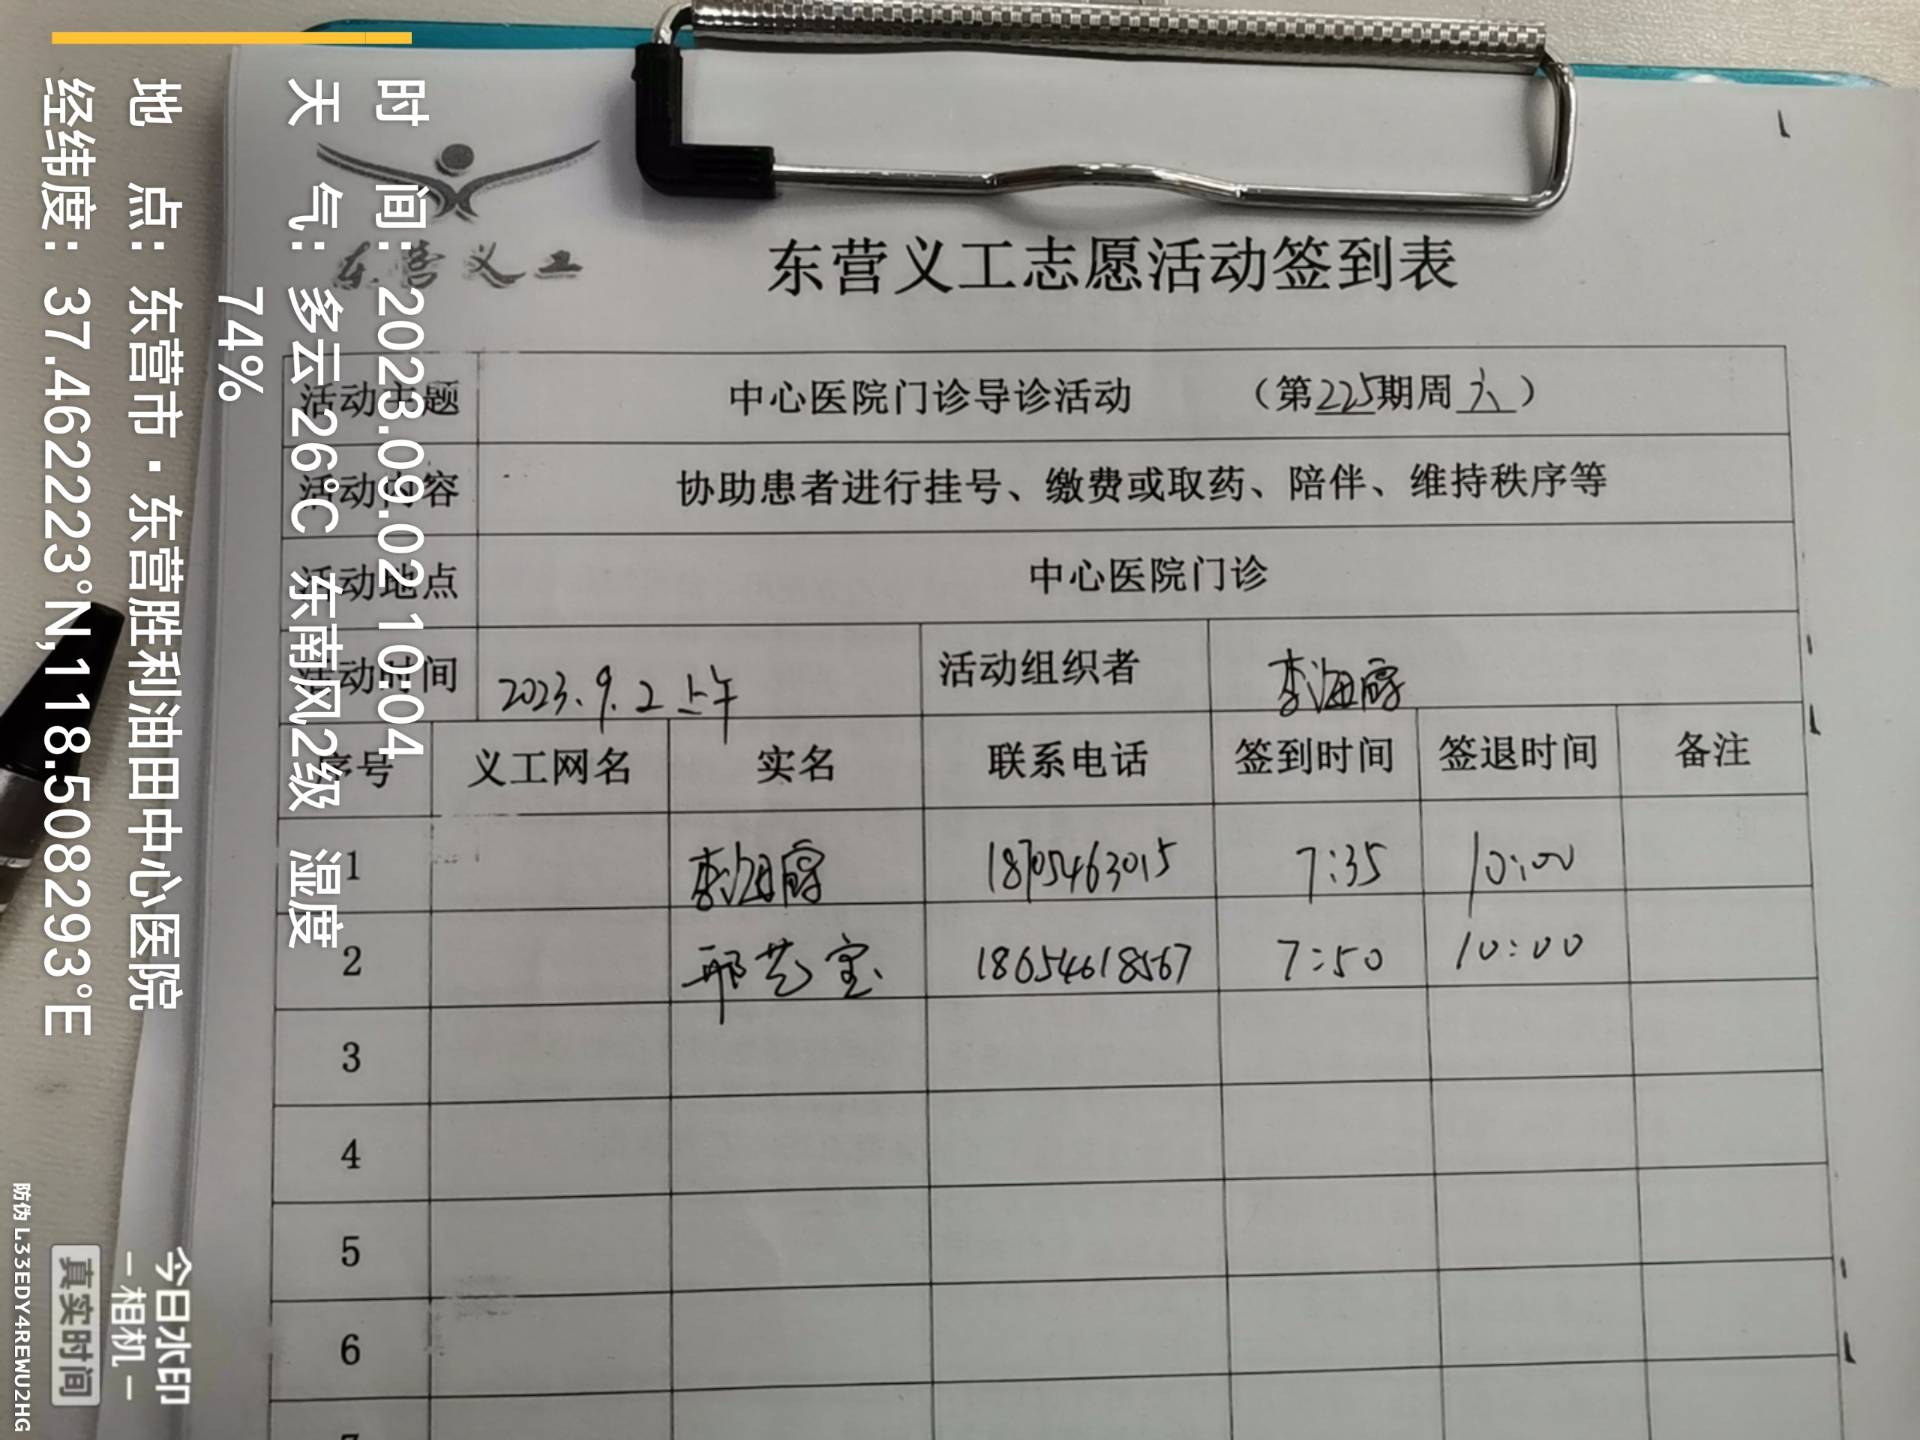 时 间：2023.09.02 10:04
天 气：多云 26℃ 东南风2级 湿度
74%
地 点：东营市·东营胜利油田中心医院
经纬度：37.462223°N,118.508293°E
东营义工
东营义工志愿活动签到表
活动主题 中心医院门诊导诊活动 （第225期周六）
活动内容 协助患者进行挂号、缴费或取药、陪伴、维持秩序等
活动地点 中心医院门诊
活动时间 2023.9.2上午 活动组织者 李海
序号 义工网名 实名 联系电话 签到时间 签退时间 备注
1 李海 18705463015 7:35 10:00
2 邢艺宝 18654618567 7:50 10:00
3
4
5
6
7
今日水印
相机
真实时间
防伪 L33EDY4REWU2HG